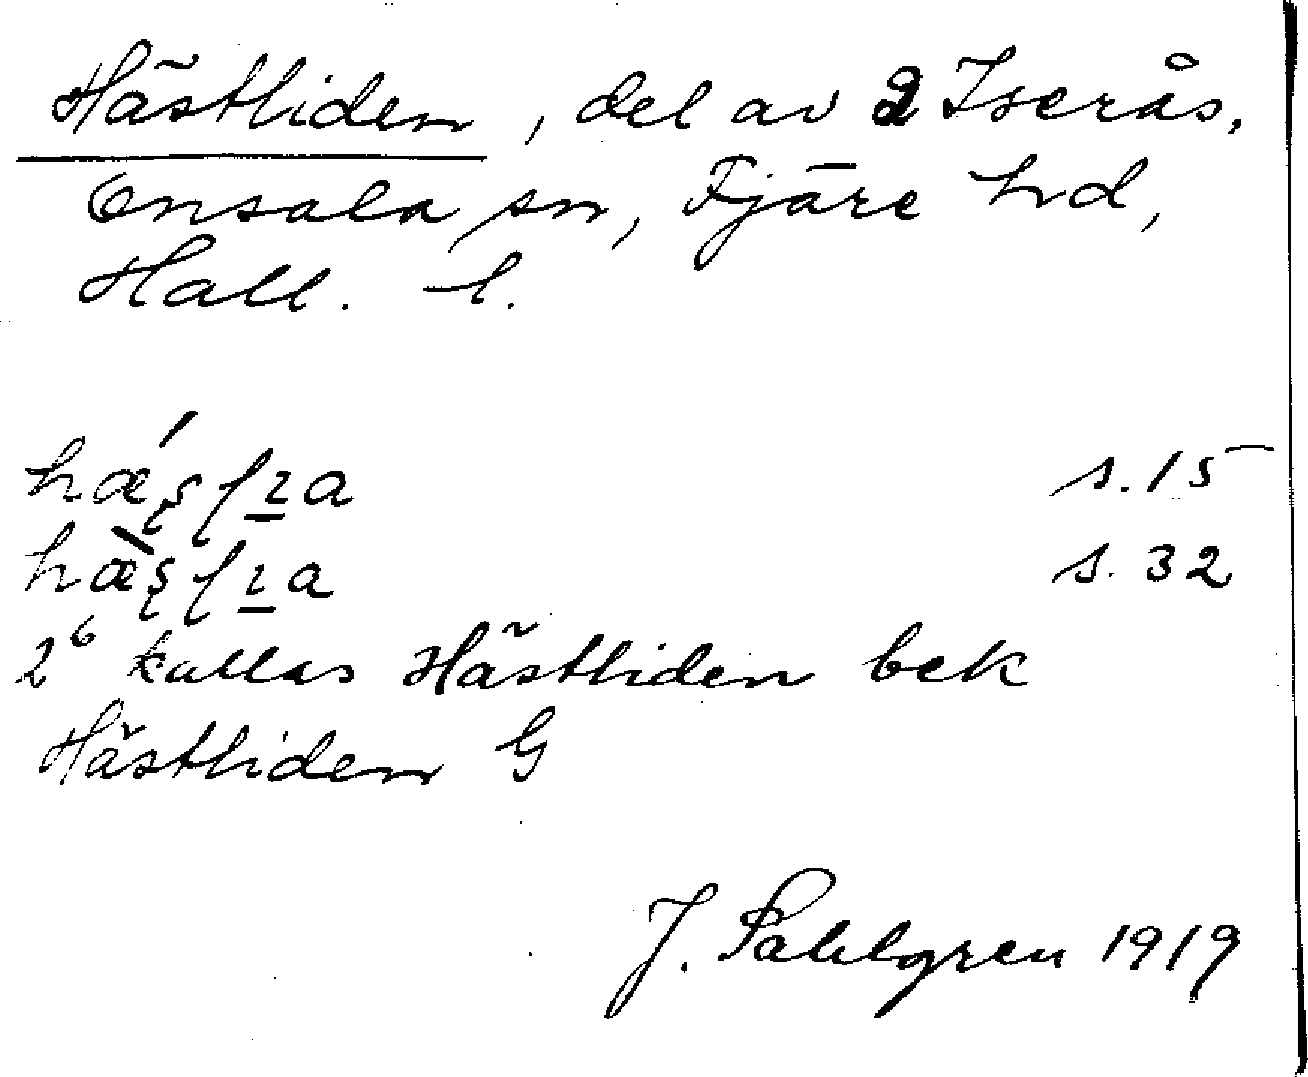 Hästliden, del av 2 Iserås,
Onsala sn, Fjäre hd,
Hall. l.
s. 15
s. 32
2⁶ kallas Hästliden bek
Hästliden G
J. Sahlgren 1919